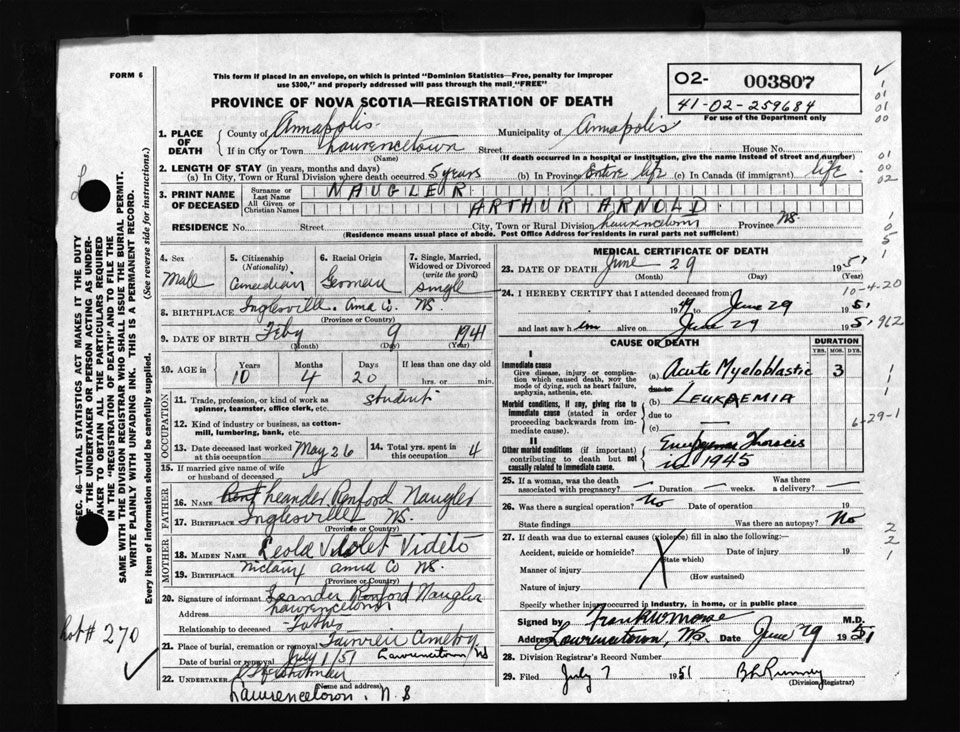 FORM 6
This form if placed in an envelope, on which is printed "Dominion Statistics—Free, penalty for improper
use $300," and properly addressed will pass through the mail "FREE"
O2- 003807
41-02-259684
For use of the Department only
PROVINCE OF NOVA SCOTIA—REGISTRATION OF DEATH
1. PLACE OF DEATH
County of Annapolis Municipality of Annapolis
If in City or Town Lawrencetown Street House No.
(Name) (If death occurred in a hospital or institution, give the name instead of street and number)
2. LENGTH OF STAY (in years, months and days)
(a) In City, Town or Rural Division where death occurred 5 years (b) In Province Entire life (c) In Canada (if immigrant) life
3. PRINT NAME OF DECEASED
Surname or Last Name NAUGLER
All Given or Christian Names ARTHUR ARNOLD
RESIDENCE No. Street City, Town or Rural Division Lawrencetown Province NS.
(Residence means usual place of abode. Post Office Address for residents in rural parts not sufficient)
4. Sex Male
5. Citizenship (Nationality) Canadian
6. Racial Origin German
7. Single, Married, Widowed or Divorced (write the word) single
8. BIRTHPLACE Inglesville. Anna Co. NS.
(Province or Country)
9. DATE OF BIRTH Feby 9 1941
(Month) (Day) (Year)
10. AGE in Years 10 Months 4 Days 20 If less than one day old
hrs. or min.
OCCUPATION
11. Trade, profession, or kind of work as spinner, teamster, office clerk, etc. student
12. Kind of industry or business, as cotton-mill, lumbering, bank, etc.
13. Date deceased last worked at this occupation May 26
14. Total yrs. spent in this occupation 4
15. If married give name of wife or husband of deceased
FATHER
16. NAME Leander Renford Naugler
17. BIRTHPLACE Inglesville NS.
(Province or Country)
MOTHER
18. MAIDEN NAME Leola Violet Videto
19. BIRTHPLACE Nictaux Anna Co NS.
(Province or Country)
20. Signature of informant Leander Renford Naugler
Address Lawrencetown
Relationship to deceased Father
21. Place of burial, cremation or removal
Date of burial or removal July 1/51 Lawrencetown, NS
22. UNDERTAKER
(Name and address)
Lawrencetown, N S
MEDICAL CERTIFICATE OF DEATH
23. DATE OF DEATH June 29 1951
(Month) (Day) (Year)
24. I HEREBY CERTIFY that I attended deceased from:
1949 to June 29 1951
and last saw him alive on June 29 1951
CAUSE OF DEATH
DURATION
YRS. MOS. DYS.
I
Immediate cause
Give disease, injury or complication which caused death, NOT the mode of dying, such as heart failure, asphyxia, asthenia, etc.
(a) Acute Myeloblastic 3
due to
(b) LEUKAEMIA
Morbid conditions, if any, giving rise to immediate cause (stated in order proceeding backwards from immediate cause).
due to
(c)
II
Other morbid conditions (if important) contributing to death but not causally related to immediate cause.
Empyema Thoracis
in 1945
25. If a woman, was the death associated with pregnancy? — Duration — weeks. Was there a delivery? —
26. Was there a surgical operation? No Date of operation 19
State findings Was there an autopsy? No
27. If death was due to external causes (violence) fill in also the following:
Accident, suicide or homicide? Date of injury 19
(State which)
Manner of injury
(How sustained)
Nature of injury
Specify whether injury occurred in industry, in home, or in public place
Signed by Frank W Morse M.D.
Address Lawrencetown, NS. Date June 29 1951
28. Division Registrar's Record Number
29. Filed July 7 1951
(Division Registrar)
SEC. 46—VITAL STATISTICS ACT MAKES IT THE DUTY
OF THE UNDERTAKER OR PERSON ACTING AS UNDER-
TAKER TO OBTAIN ALL THE PARTICULARS REQUIRED
IN THE "REGISTRATION OF DEATH" AND TO FILE THE
SAME WITH THE DIVISION REGISTRAR WHO SHALL ISSUE THE BURIAL PERMIT.
WRITE PLAINLY WITH UNFADING INK. THIS IS A PERMANENT RECORD.
Every item of information should be carefully supplied. (See reverse side for instructions.)
Lot # 270
1
01
01
00
01
00
02
10-4-20
962
6-29-1
2
2
1